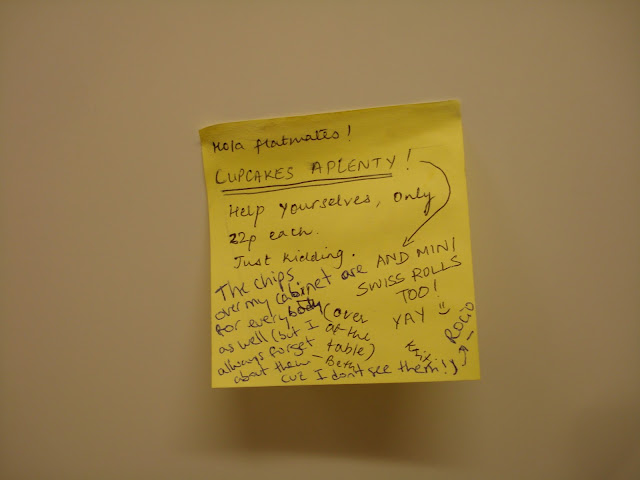 Hola flatmates!
CUPCAKES APLENTY!
Help yourselves, only
22p each.
Just kidding.
AND MINI
SWISS ROLLS
TOO!
YAY
The chips
over my cabinet are
for everybody (over
as well (but I of the
always forget table)
about them - Beth
cuz I don't see them!)
ROCIO